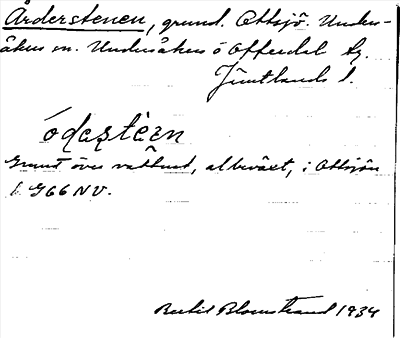 Årderstenen, grund. Ottsjö. Unders-
åkers sn. Undersåkers o Offerdal tg.
Jämtlands l.
ó̀dạstèrn
Grund över vattnet, albeväxt, i Ottsjön
1 G66 NV.
Bertil Blomstrand 1934